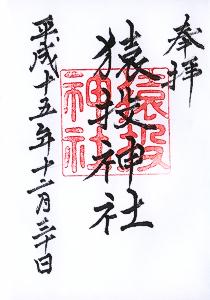 奉拝
猿投神社
猿投神社
平成十五年十二月三十日